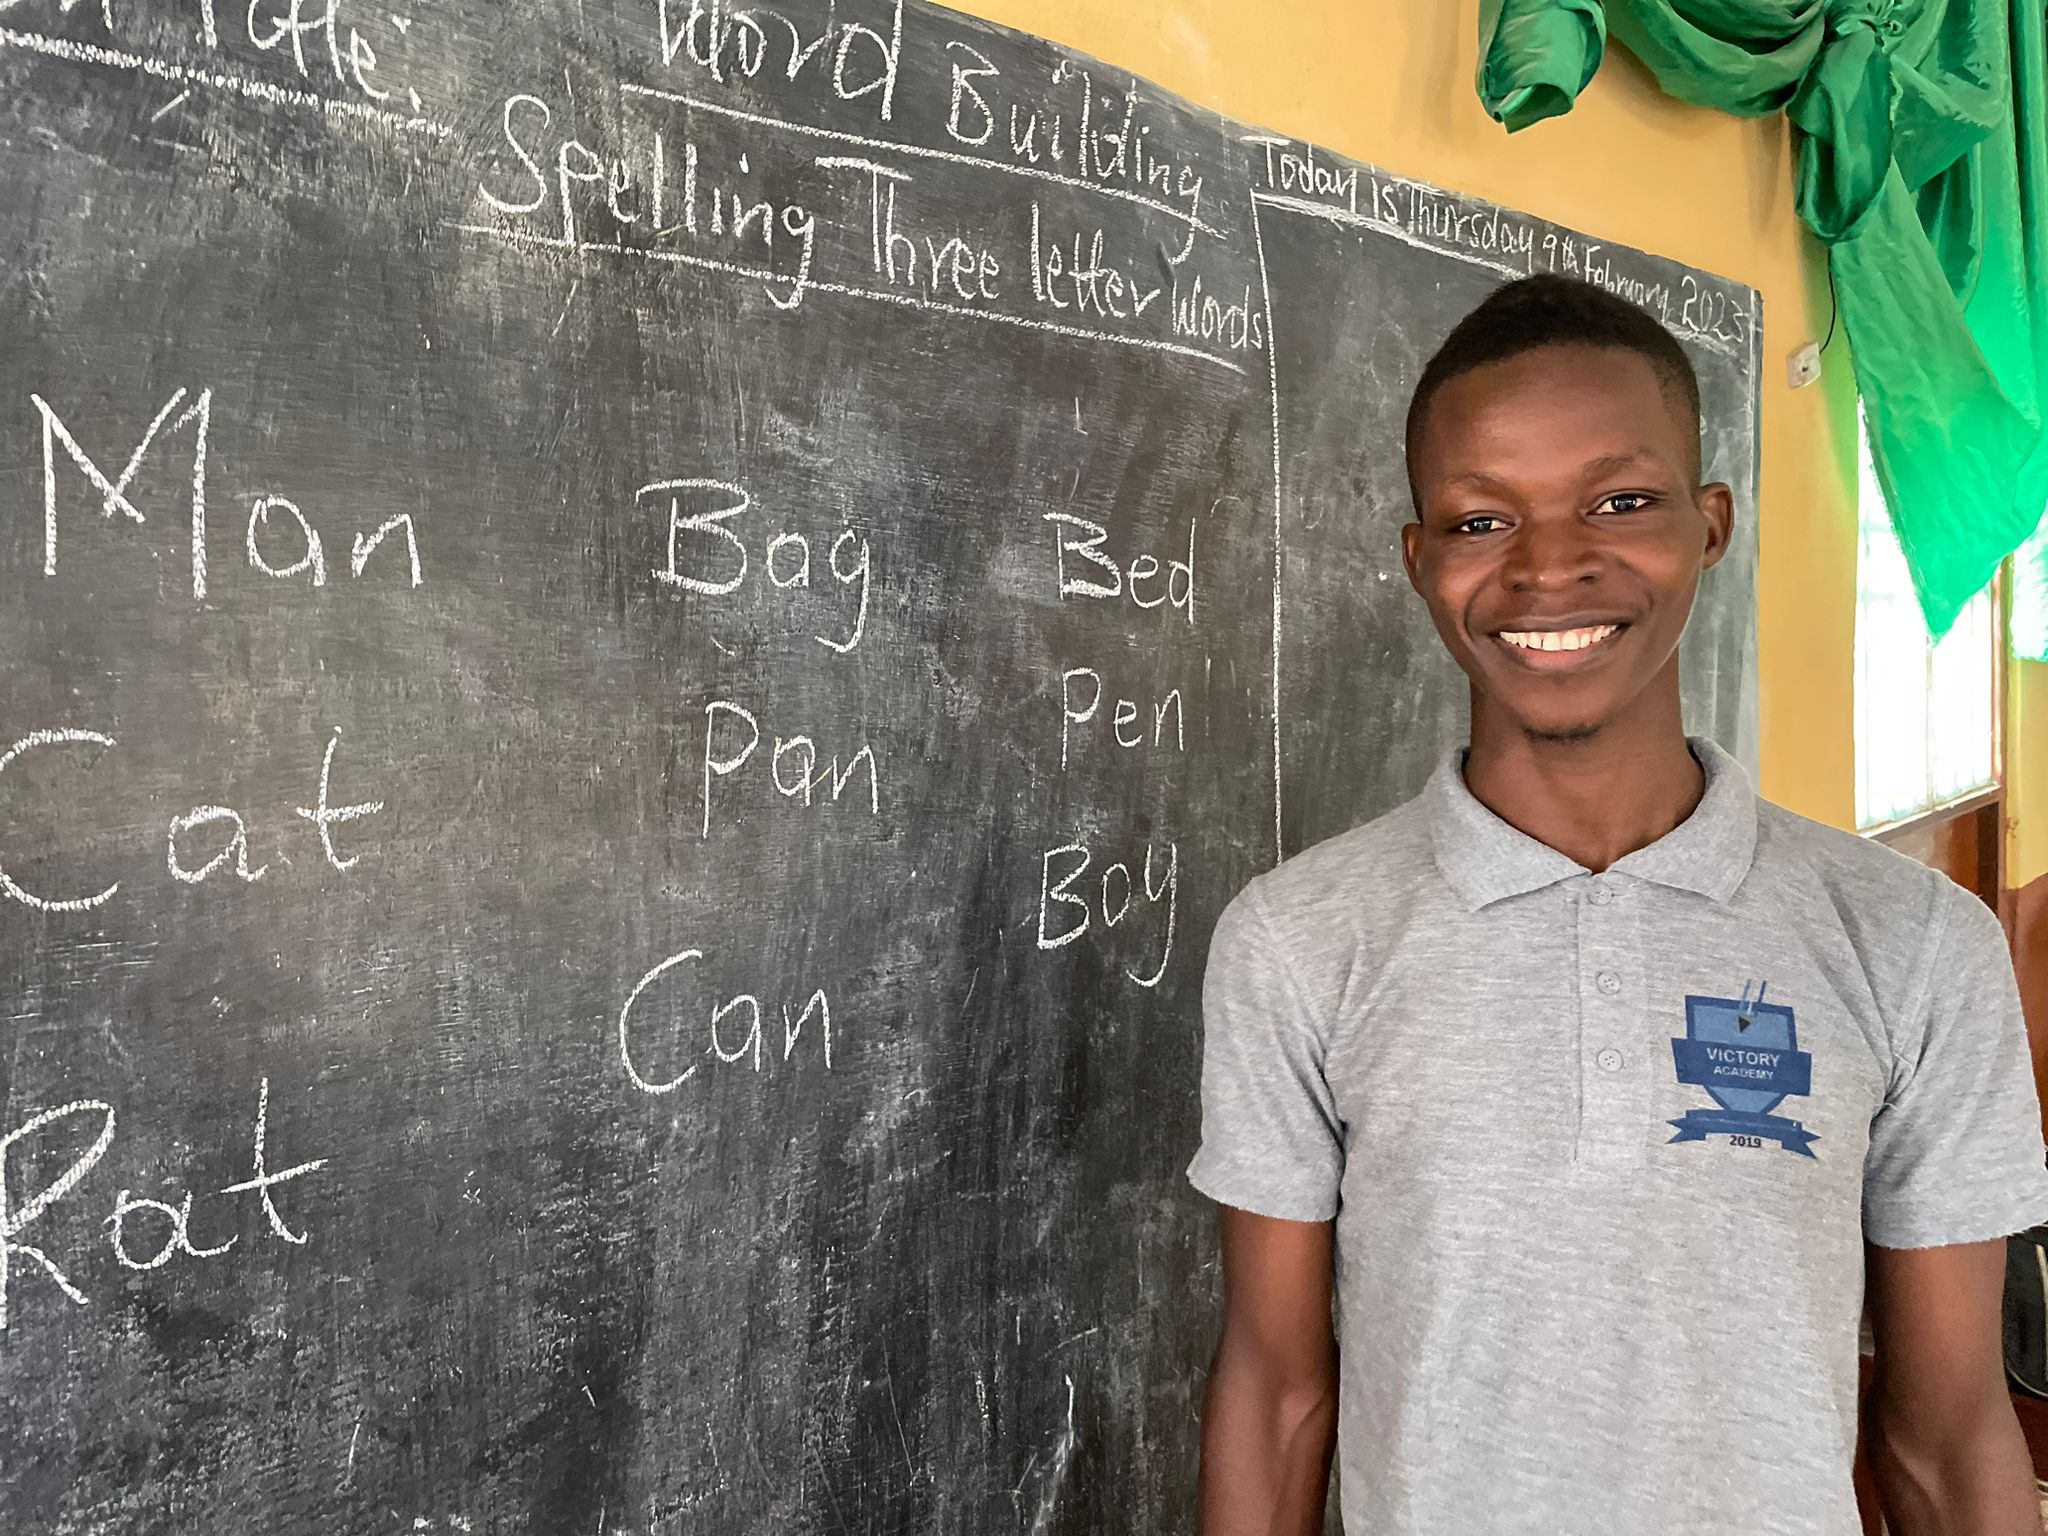 Title: Word Building
Spelling Three letter Words
Today is Thursday 9th February, 2023
Man Bag Bed
Cat Pan Pen
Rat Can Boy
VICTORY
ACADEMY
2019